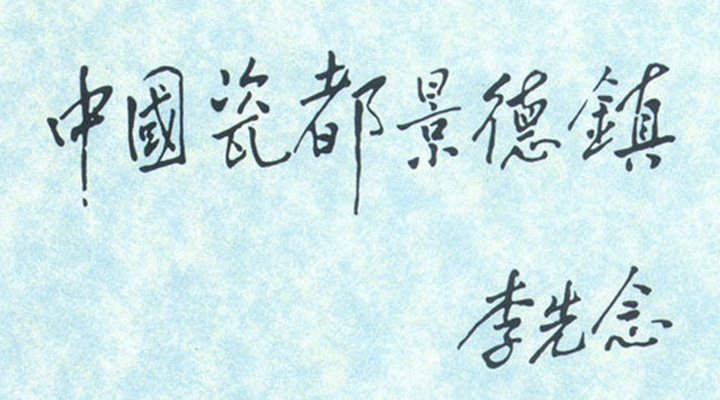 中國瓷都景德鎮
李先念